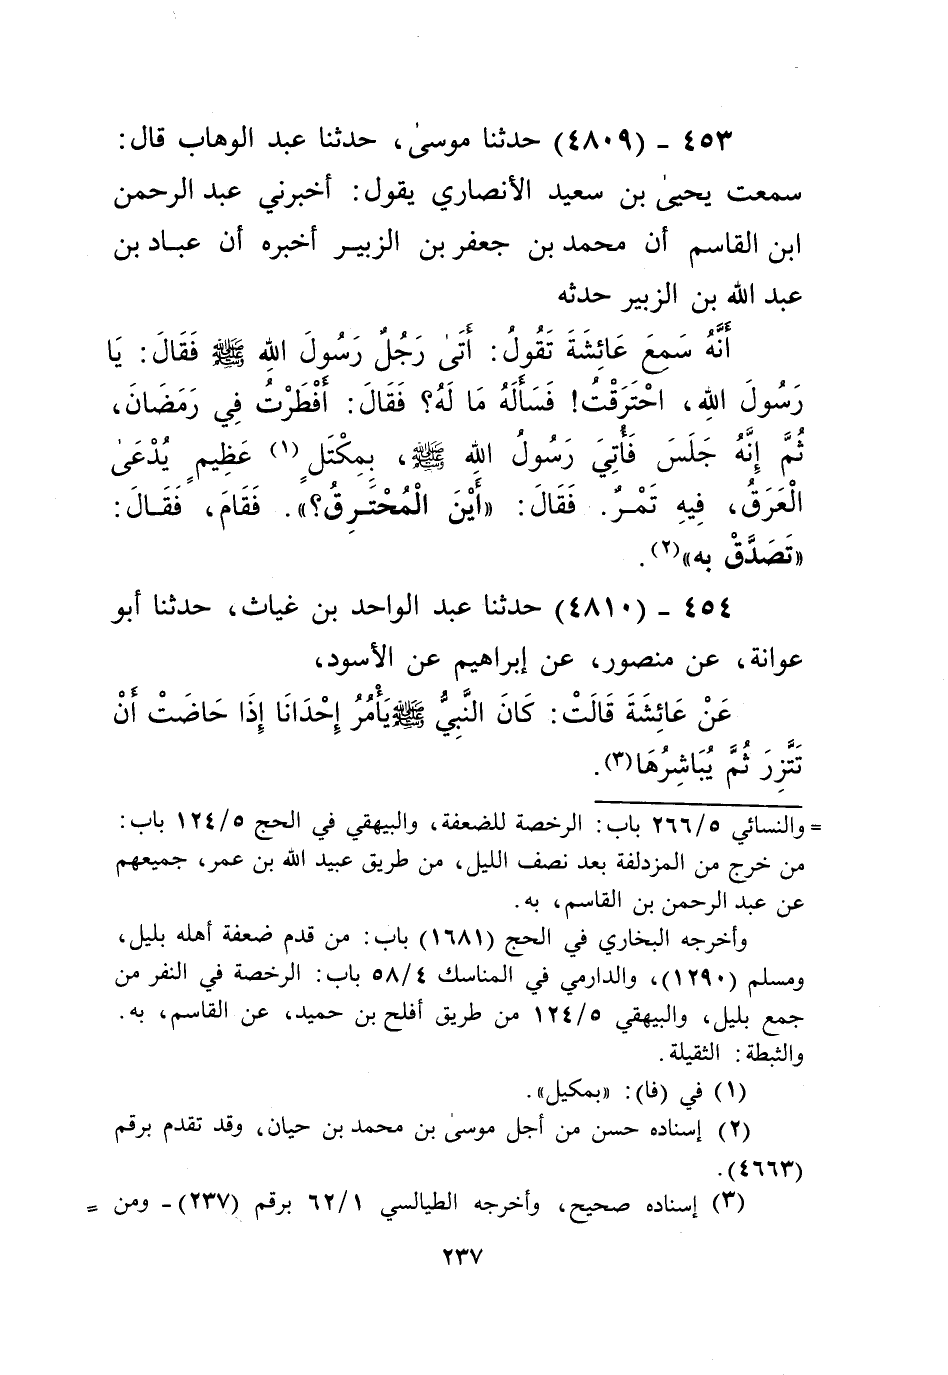 ٤٥٣ ـ (٤٨٠٩) حدثنا موسىٰ، حدثنا عبد الوهاب قال:
سمعت يحيىٰ بن سعيد الأنصاري يقول: أخبرني عبد الرحمن
ابن القاسم أن محمد بن جعفر بن الزبير أخبره أن عباد بن
عبد الله بن الزبير حدثه
أَنَّهُ سَمِعَ عَائِشَةَ تَقُولُ: أَتَىٰ رَجُلٌ رَسُولَ اللهِ ﷺ فَقَالَ: يَا
رَسُولَ اللهِ، احْتَرَقْتُ! فَسَأَلَهُ مَا لَهُ؟ فَقَالَ: أَفْطَرْتُ فِي رَمَضَانَ،
ثُمَّ إِنَّهُ جَلَسَ فَأُتِيَ رَسُولُ اللهِ ﷺ، بِمِكْتَلٍ(١) عَظِيمٍ يُدْعَىٰ
الْعَرَقُ، فِيهِ تَمْرٌ. فَقَالَ: «أَيْنَ الْمُحْتَرِقُ؟». فَقَامَ، فَقَالَ:
«تَصَدَّقْ بِه»(٢).
٤٥٤ ـ (٤٨١٠) حدثنا عبد الواحد بن غياث، حدثنا أبو
عوانة، عن منصور، عن إبراهيم عن الأسود،
عَنْ عَائِشَةَ قَالَتْ: كَانَ النَّبِيُّ ﷺ يَأْمُرُ إِحْدَانَا إِذَا حَاضَتْ أَنْ
تَتَّزِرَ ثُمَّ يُبَاشِرُهَا(٣).
= والنسائي ٢٦٦/٥ باب: الرخصة للضعفة، والبيهقي في الحج ١٢٤/٥ باب:
من خرج من المزدلفة بعد نصف الليل، من طريق عبيد الله بن عمر، جميعهم
عن عبد الرحمن بن القاسم، به.
وأخرجه البخاري في الحج (١٦٨١) باب: من قدم ضعفة أهله بليل،
ومسلم (١٢٩٠)، والدارمي في المناسك ٥٨/٤ باب: الرخصة في النفر من
جمع بليل، والبيهقي ١٢٤/٥ من طريق أفلح بن حميد، عن القاسم، به.
والثبطة: الثقيلة.
(١) في (فا): «بمكيل».
(٢) إسناده حسن من أجل موسىٰ بن محمد بن حيان، وقد تقدم برقم
(٤٦٦٣).
(٣) إسناده صحيح، وأخرجه الطيالسي ٦٢/١ برقم (٢٣٧) ـ ومن =
٢٣٧